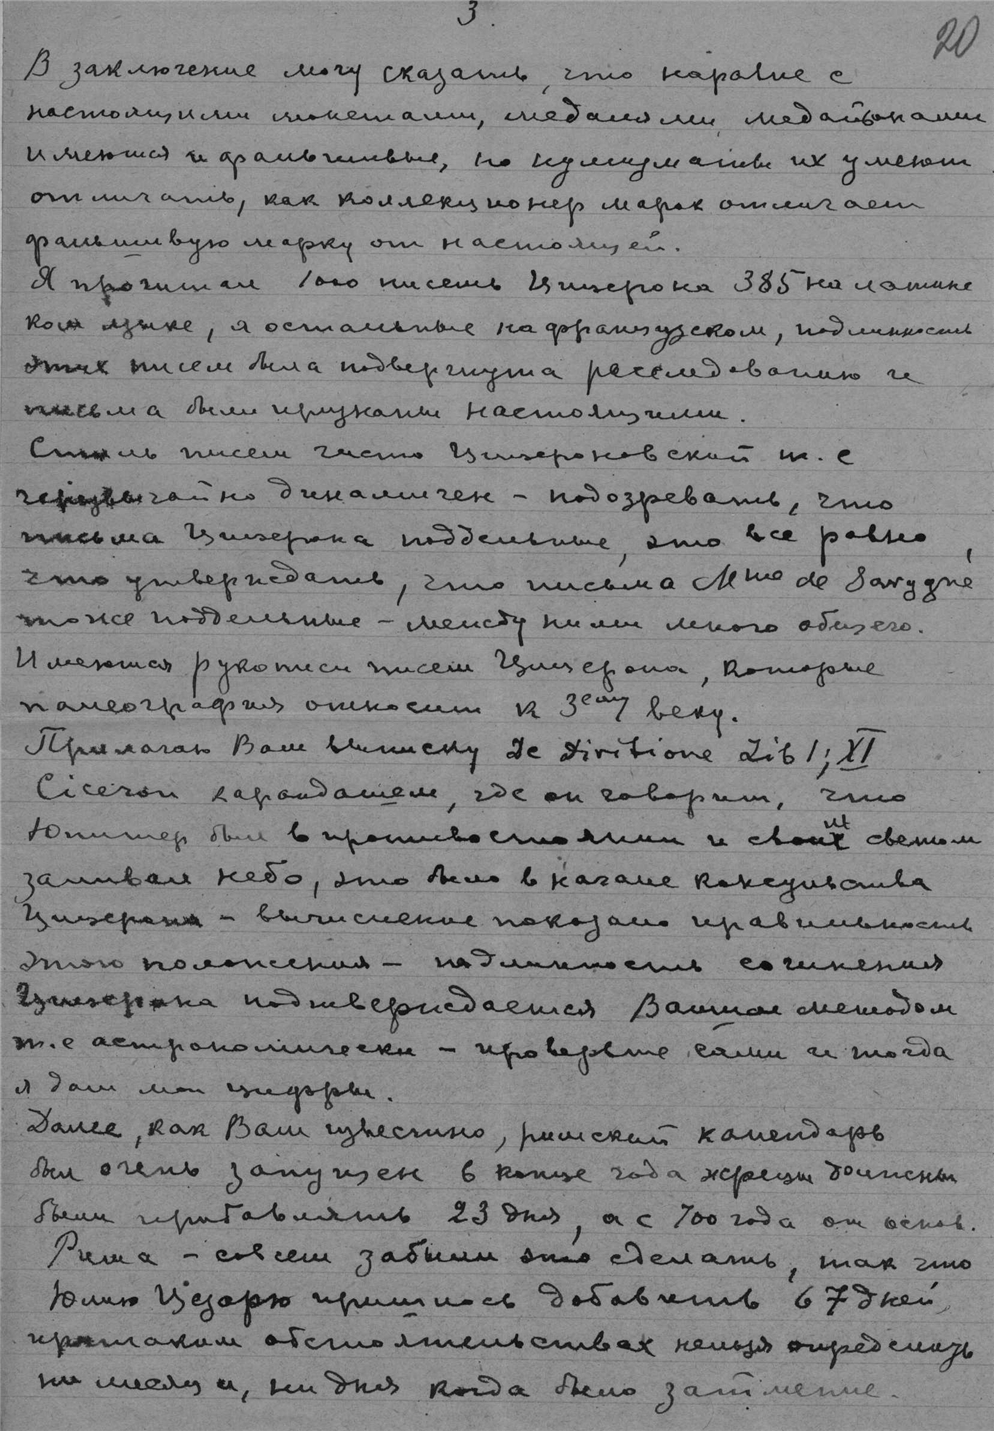 3.
20
В заключение могу сказать, что наравне с
настоящими монетами, медалями, медальонами
имеются и фальшивые, но нумизматы их умеют
отличать, как коллекционер марок отличает
фальшивую марку от настоящей.
Я прочитал 1000 писем Цицерона 385 на латинс
ком языке, а остальные на французском, подлинность
этих писем была подвергнута расследованию и
письма были признаны настоящими.
Стиль писем чисто Цицероновский т.е
чрезвычайно динамичен – подозревать, что
письма Цицерона поддельные, это все равно,
что утверждать, что письма Mme de Savygné
тоже поддельные – между ними много общего.
Имеются рукописи писем Цицерона, которые
палеография относит к 3ему веку.
Прилагаю Вам выписку De Divitione Lib I; XI
Ciceron карандашем, где он говорит, что
Юпитер был в противостоянии и своим светом
заливал небо, это было в начале консульства
Цицерона – вычисление показало правильность
этого положения – подлинность сочинения
Цицерона подтверждается Вашим методом
т.е астрономически – проверьте сами и тогда
я дам мои цифры.
Далее, как Вам известно, римский календарь
был очень запущен в конце года жрецы должны
были прибавлять 23 дня, а с 700 года от основ.
Рима – совсем забыли это сделать, так что
Юлию Цезарю пришлось добавить 67 дней,
при таком обстоятельствах нельзя определить
ни месяца, ни дня когда было затмение.